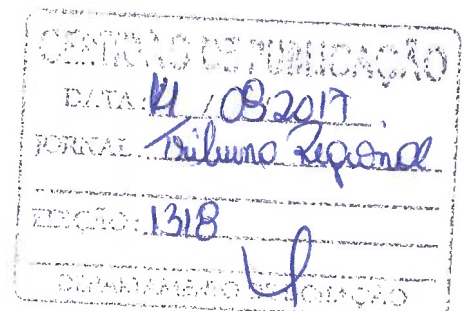 CERTIDÃO DE PUBLICAÇÃO
DATA: /08/2017
JORNAL Tribuna Regional
EDIÇÃO: 1318
DEPARTAMENTO DE